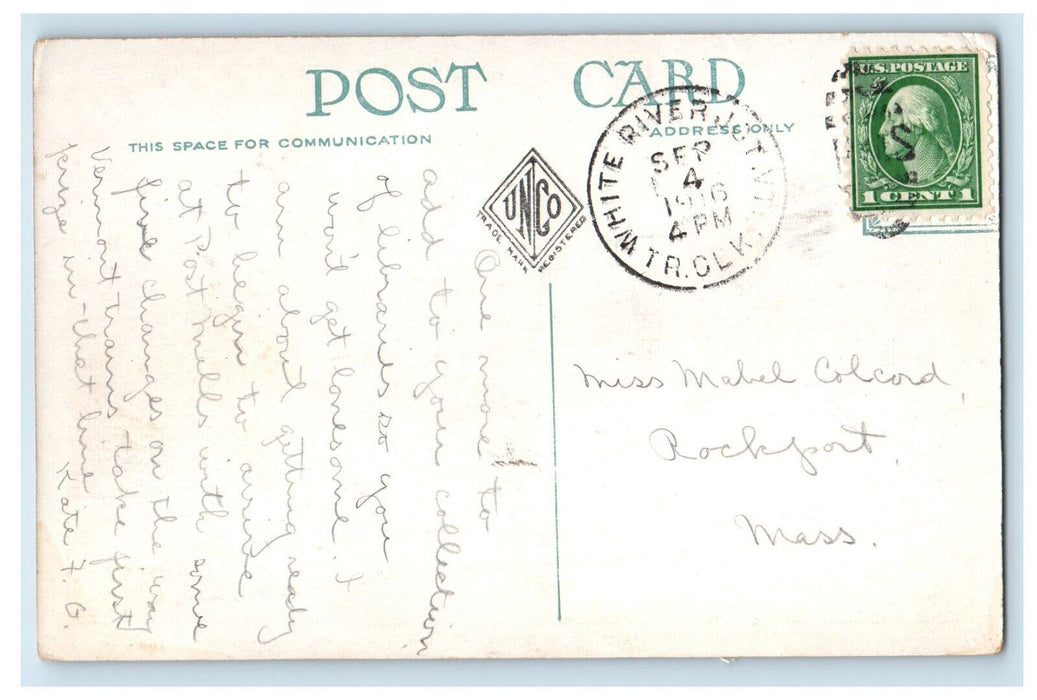 POST CARD
THIS SPACE FOR COMMUNICATION
ADDRESS ONLY
UNCO
TRADE MARK REGISTERED
WHITE RIVER JCT. VT.
SEP
4
1916
4 PM
TR. CLK.
U.S. POSTAGE
1 CENT 1
One more to
add to your collection
of libraries so you
won't get lonesome. I
am about getting ready
to begin to arrive
at Post Mills with some
five changes on the way
Vermont trains take first
prize in that line
Kate F. G.
Miss Mabel Colcord,
Rockport,
Mass.